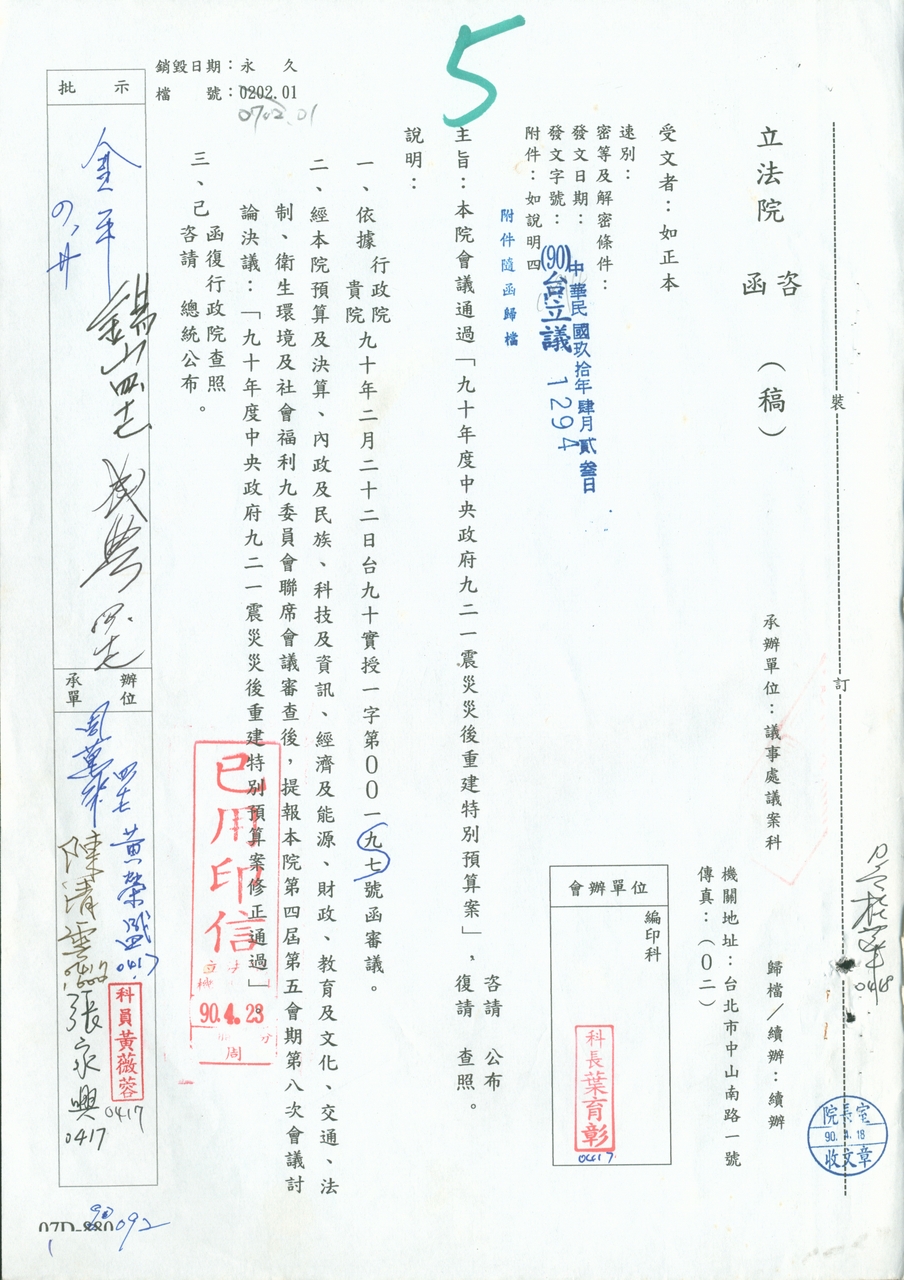 5
銷毀日期：永久
檔號：0202.01
0702.01
立法院 咨函 （稿）
承辦單位：議事處議案科
歸檔／續辦：續辦
機關地址：台北市中山南路一號
傳真：（０二）
受文者：如正本
速別：
密等及解密條件：
發文日期：中華民國玖拾年肆月貳叁日
發文字號：(90)台立議 1294
附件：如說明四
附件隨函歸檔
主旨：本院會議通過「九十年度中央政府九二一震災災後重建特別預算案」，咨請公布 復請查照。
說明：
一、依據行政院貴院九十年二月二十二日台九十實授一字第００一九七號函審議。
二、經本院預算及決算、內政及民族、科技及資訊、經濟及能源、財政、教育及文化、交通、法
制、衛生環境及社會福利九委員會聯席會議審查後，提報本院第四屆第五會期第八次會議討
論決議：「九十年度中央政府九二一震災災後重建特別預算案修正通過」。
三、已函復行政院查照 咨請總統公布。
會辦單位
編印科
科長葉育彰
0417
院長室
90.4.18
收文章
裝
訂
0418
已用印信
90.4.23
周
批示
金平
承辦單位
黃榮盛
0417
陳清雲
科員黃薇蓉
0417
張永興
0417
07D-880
90092